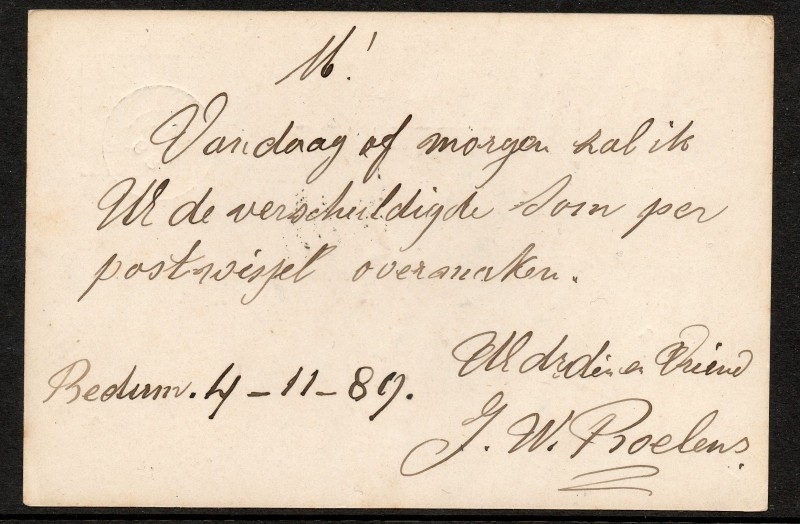 M!
Vandaag of morgen zal ik
UE de verschuldigde som per
postwissel overmaken.
UEdwdiener Vriend
Bedum. 4-11-89.
J. W. Roelens